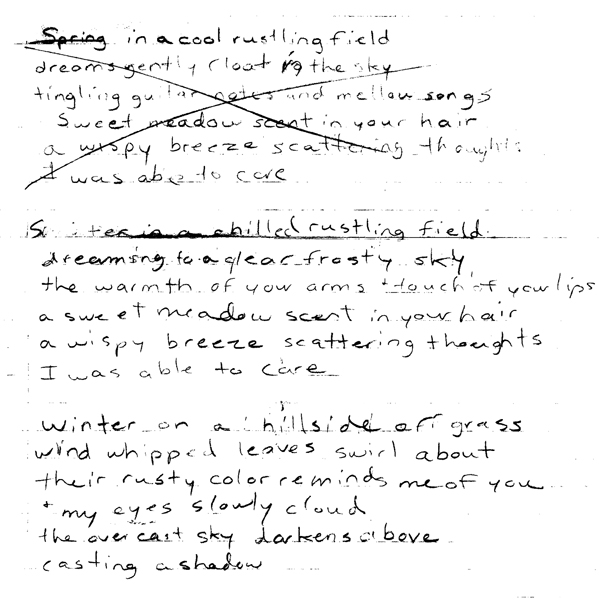 Spring in a cool rustling field
dreams gently float in the sky
tingling guitar notes and mellow songs
Sweet meadow scent in your hair
a wispy breeze scattering thoughts
I was able to care
in a chilled rustling field
dreaming to a clear frosty sky
the warmth of your arms + touch of your lips
a sweet meadow scent in your hair
a wispy breeze scattering thoughts
I was able to care
Winter on a hillside of grass
wind whipped leaves swirl about
their rusty color reminds me of you
+ my eyes slowly cloud
the overcast sky darkens above
casting a shadow